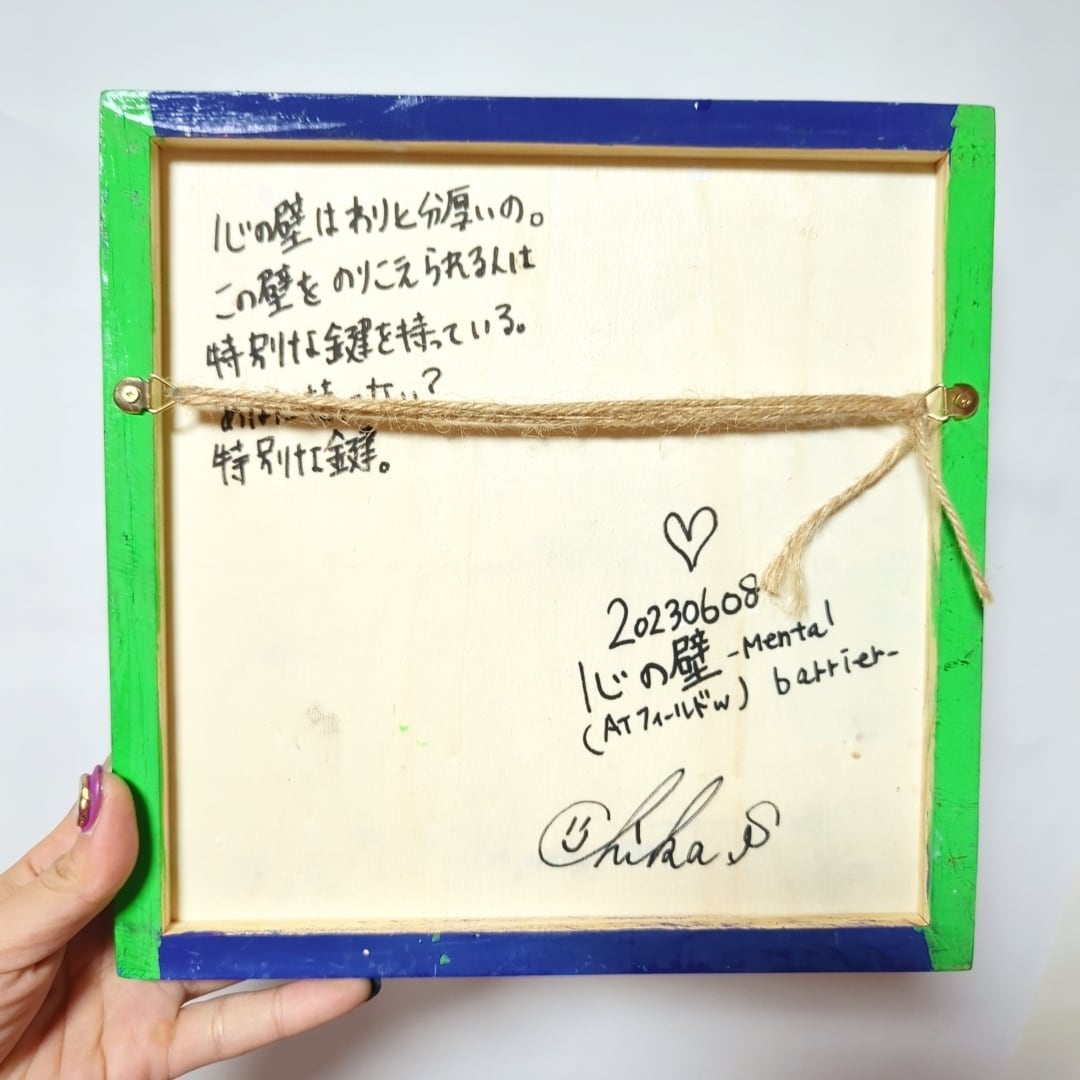 心の壁はわりと分厚いの。
この壁をのりこえられる人は
特別な鍵を持っている。
ない?
特別な鍵。
20230608
心の壁 -Mental
(ATフィールドw) barrier-
Chika.S